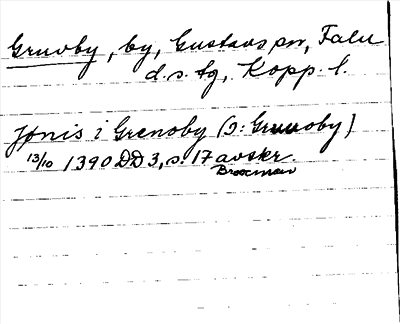 Gruvby, by, Gustavs sn, Falu
d. s. tg, Kopp. l.
Jønis i Grenoby (ɔ: Gruuoby)
13/10 1390 DD 3, s. 17 avskr.
Brocman